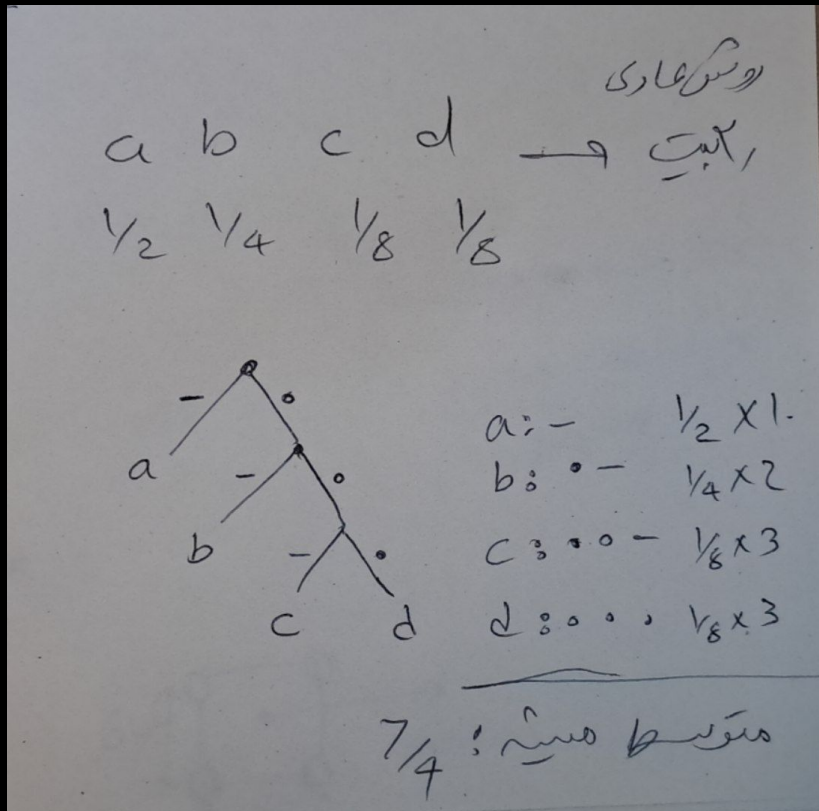 روش عادی
a b c d → ۲ بیت
1/2 1/4 1/8 1/8
- o
a - o
b - •
c d
a: - 1/2 × 1
b: • - 1/4 × 2
c: • • - 1/8 × 3
d: • • • 1/8 × 3
متوسط میشه: 7/4